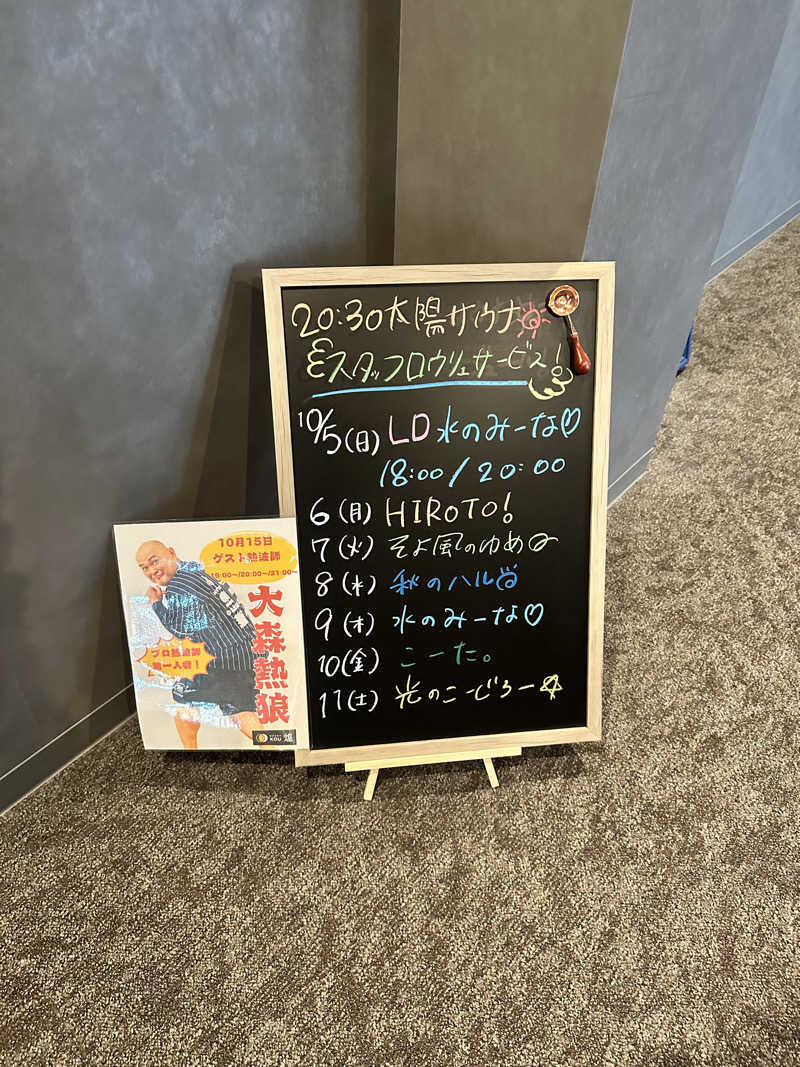 20:30太陽サウナ
スタッフロウリュサービス!
10/5(日) LD 水のみーな♡
18:00/20:00
6(月) HIROTO!
7(火) そよ風のゆめ
8(水) 秋のハル
9(木) 水のみーな♡
10(金) こーた。
11(土) 光のこーじろー☆
10月15日
ゲスト熱波師
19:00〜/20:00〜/21:00〜
大森熱狼
プロ熱波師
第一人者!
KOU 煌